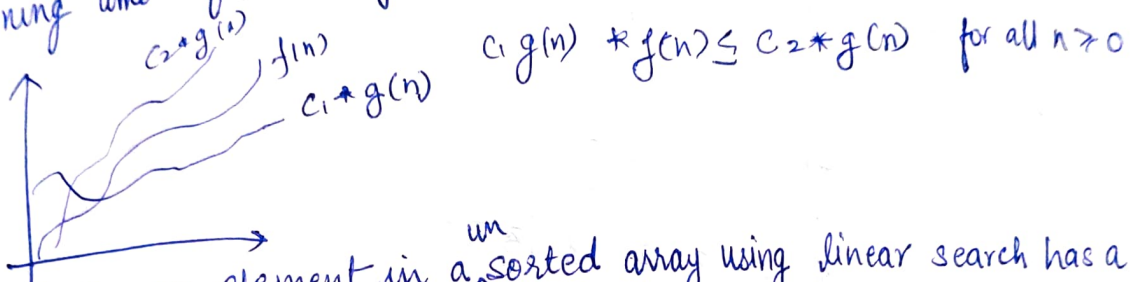 ning time
c2*g(n)
f(n)
c1*g(n)
c1 g(n) * f(n) ≤ c2*g(n) for all n ≥ 0
un
element in a sorted array using linear search has a